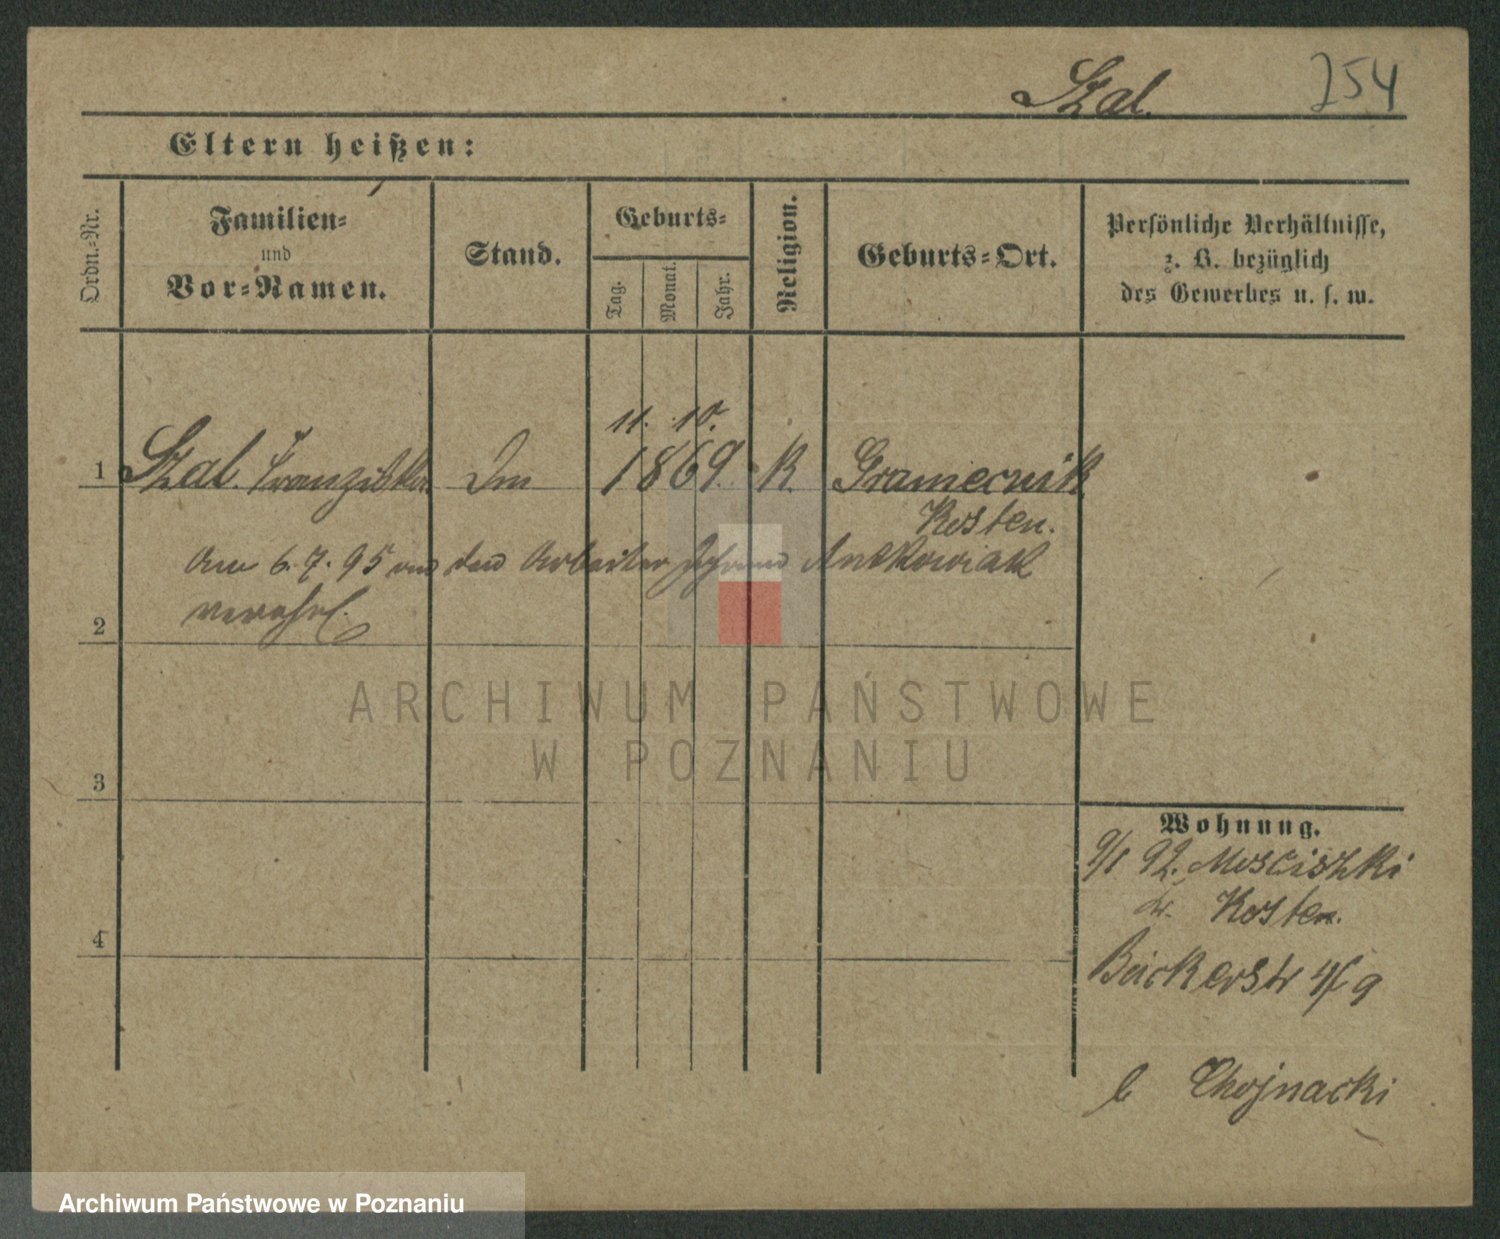 Szal. 254
Eltern heißen:
Ordn.-Nr.
Familien- und Vor-Namen.
Stand.
Geburts-
Tag. Monat. Jahr.
Religion.
Geburts-Ort.
Persönliche Verhältnisse,
z. B. bezüglich
des Gewerbes u. s. w.
11. 10.
1 Szal. Franziska 1869. K. Gramecnik
Kosten.
Am 6. 7. 95 den Arbeiter Antkowiak
verehel.
2
ARCHIWUM PAŃSTWOWE
W POZNANIU
3
Wohnung.
9/1 92. Mosciszki
Kr. Kosten.
4
Bäckerstr 4/9
b Chojnacki
Archiwum Państwowe w Poznaniu